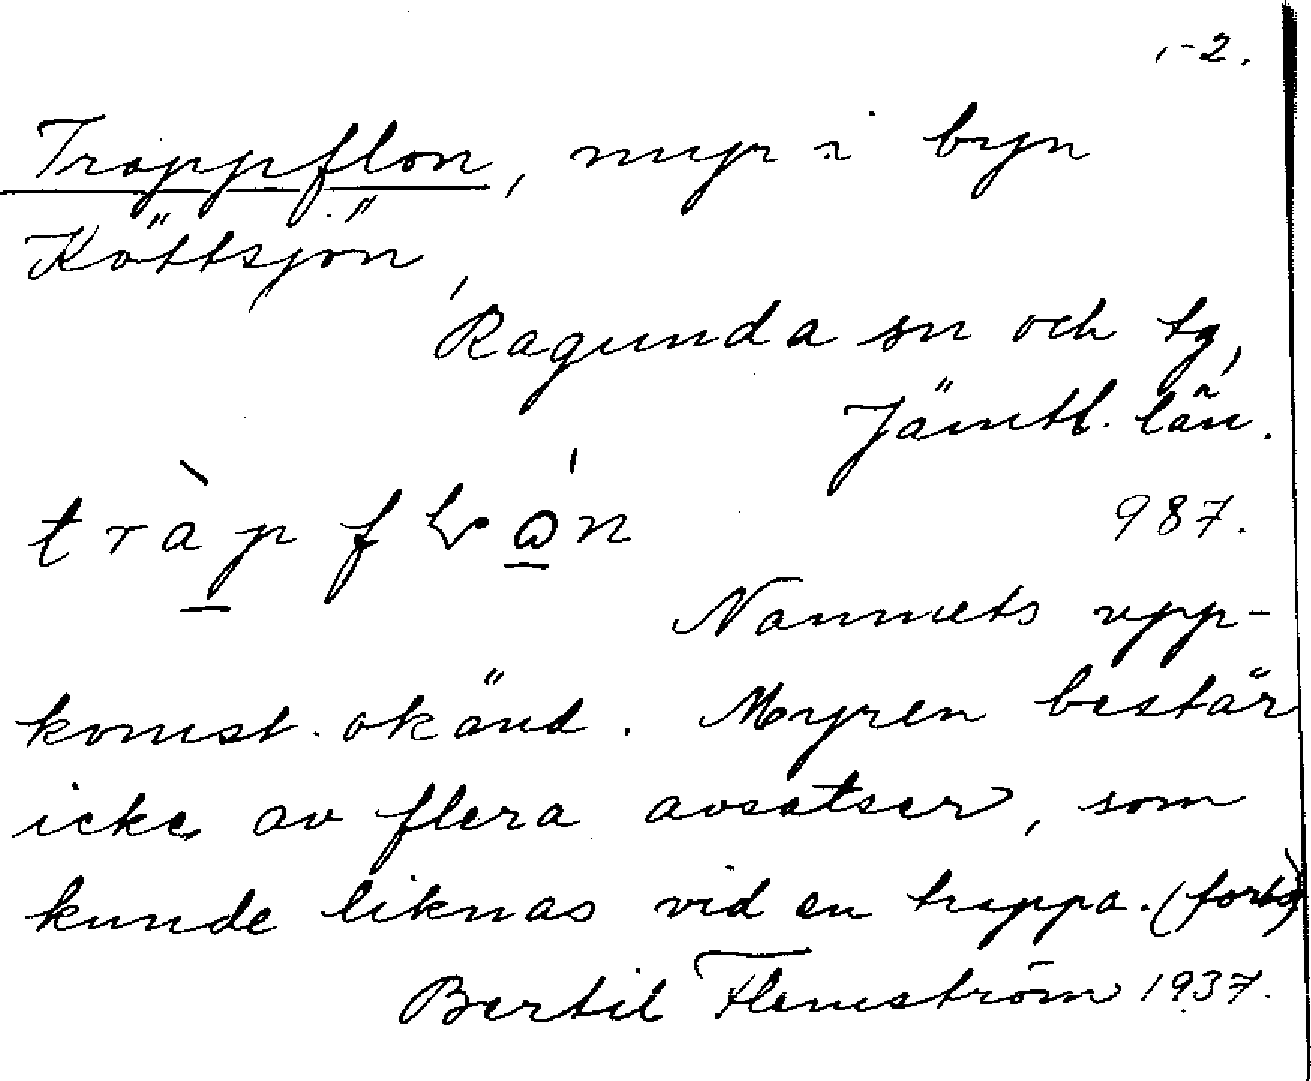 1-2.
Trappflon, myr i byn
Köttsjön,
Ragunda sn och tg,
Jämtl. län.
987.
Namnets upp-
komst okänd. Myren består
icke av flera avsatser, som
kunde liknas vid en trappa. (forts)
Bertil Flemström 1937.